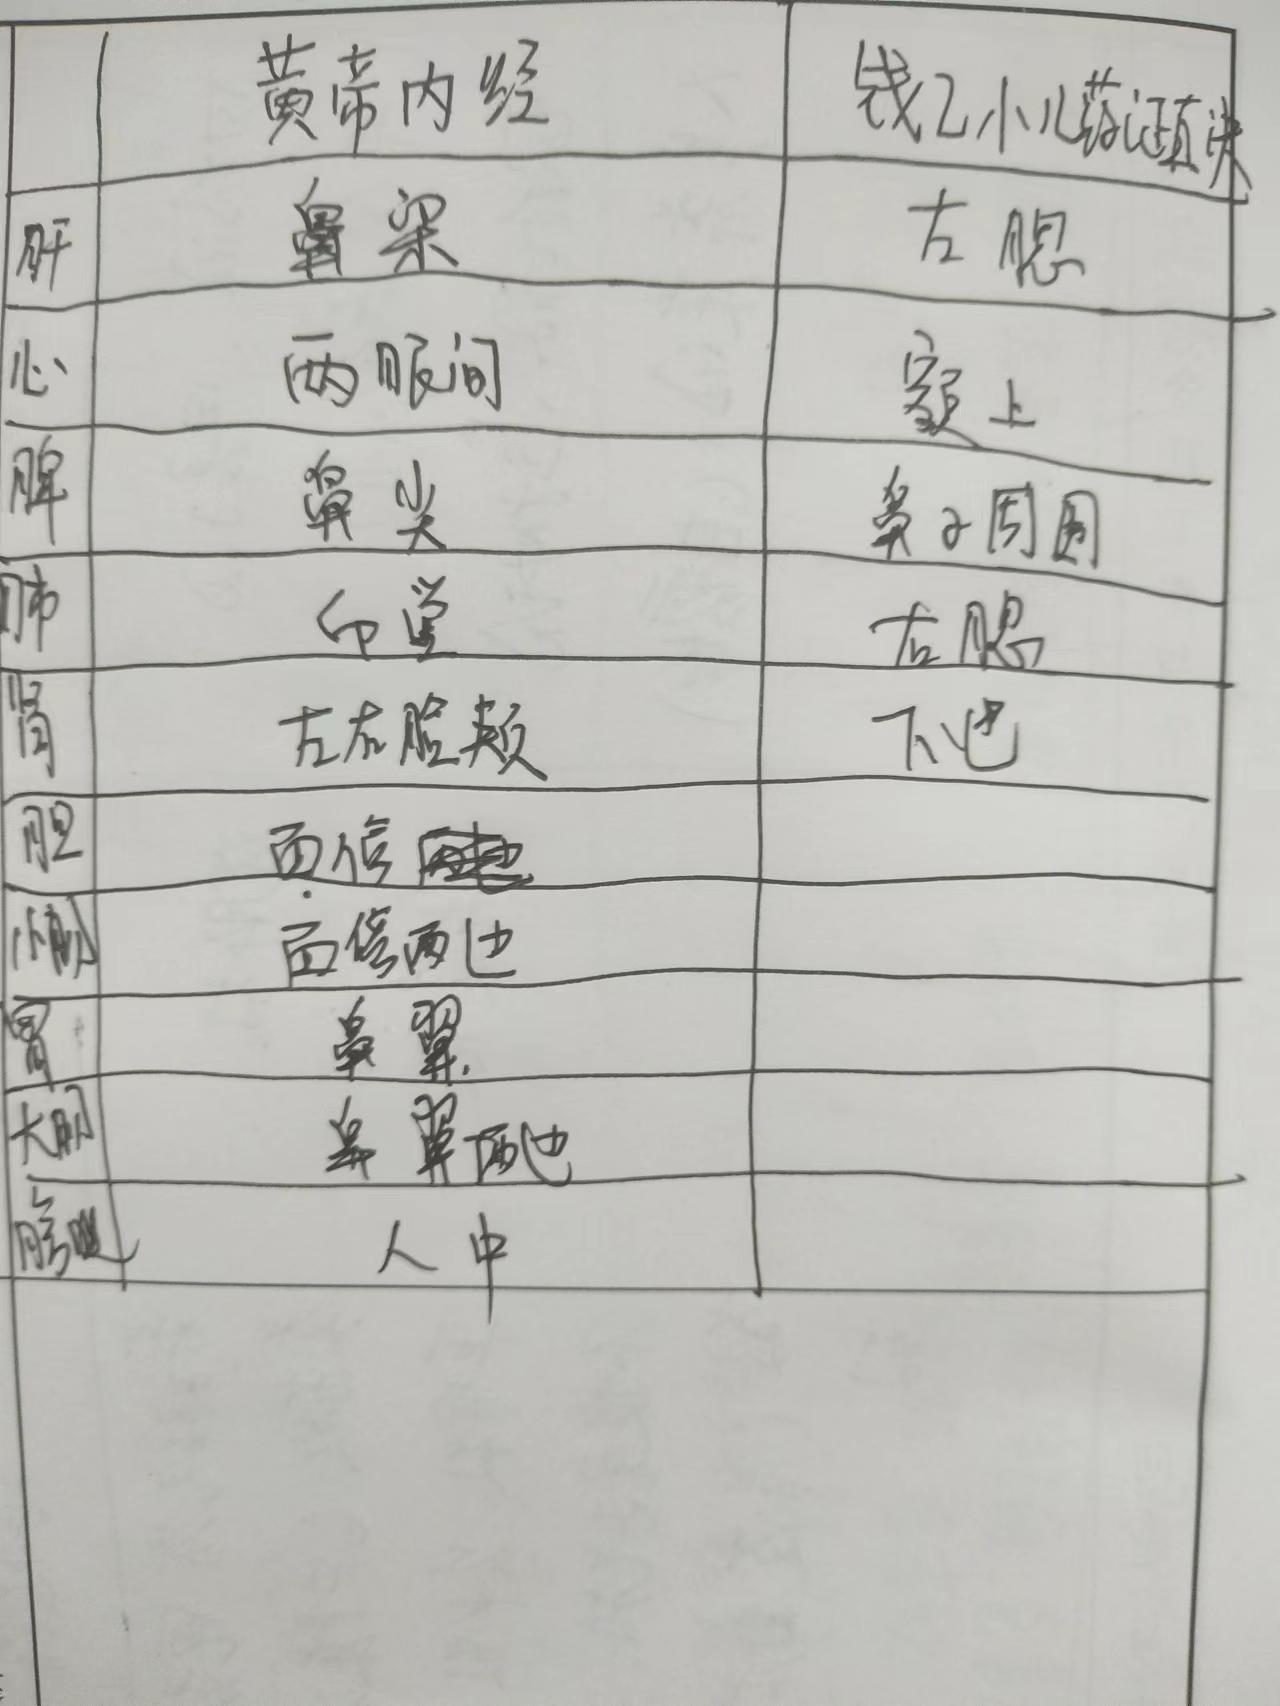 黄帝内经 钱乙小儿药证直决
肝 鼻梁 左腮
心 两眼间 额上
脾 鼻尖 鼻子周围
肺 印堂 右腮
肾 左右脸颊 下巴
胆
小肠 两边
胃 鼻翼.
大肠 鼻翼两边
膀胱 人中